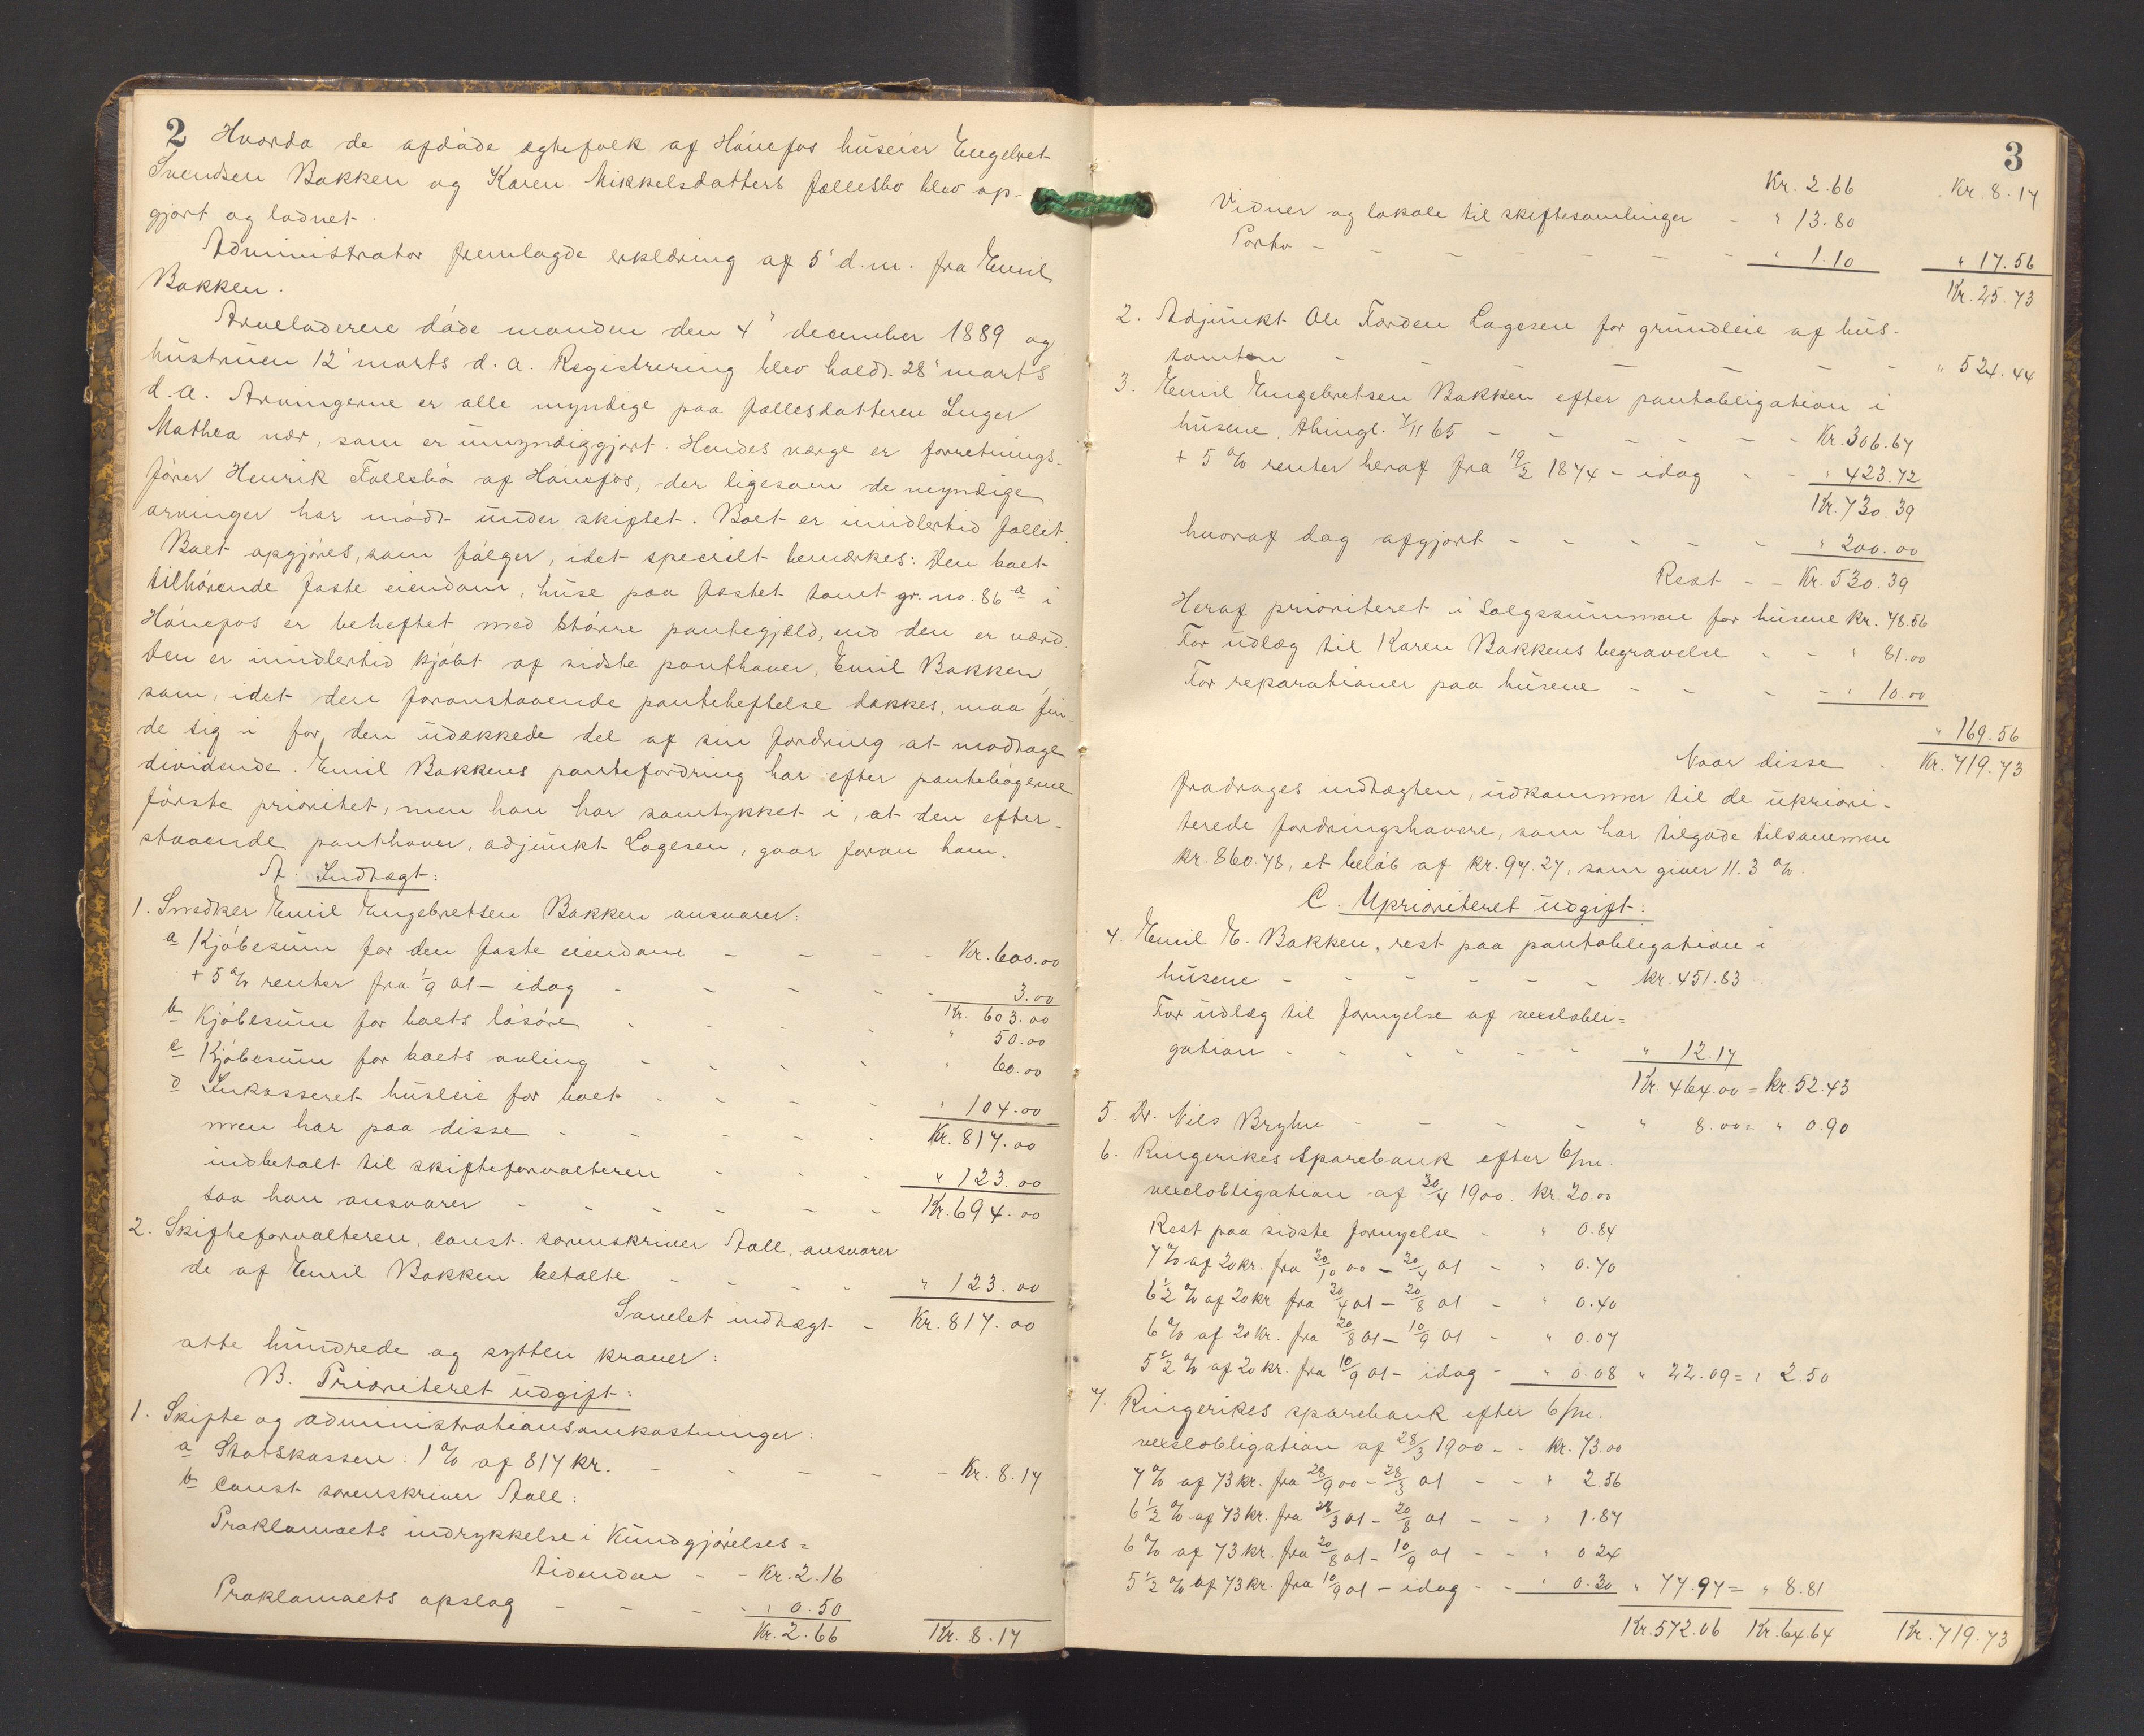 2
Hvorda de afdøde egtefolk af Hønefos huseier Engelbret
Svendsen Bakken og Karen Mikkelsdatters fællesbo blev op-
gjort og ladnet.
Administrator fremlagde erklæring af 5' d.m. fra Emil
Bakken.
Arveladerene døde manden den 4" december 1889 og
hustruen 12' marts d. a. Registrering blev holdt 28' marts
d. a. Arvingerne er alle myndige paa fællesdatteren Inger
Mathea nær, som er umyndiggjort. Hendes værge er forretnings-
fører Henrik Follesbö af Hønefos, der ligesom de myndige
arvinger har mødt under skiftet. Boet er imidlertid fallit.
Boet opgjøres, som følger, idet specielt bemærkes: Den boet
tilhørende faste eiendom, huse paa fæstet tomt gr. no. 86 a i
Hønefos er beheftet med større pantegjæld, end den er værd.
Den er imidlertid kjøbt af sidste panthaver, Emil Bakken,
som, idet den foranstaaende panteheftelse dækkes, maa fin-
de sig i for den udækkede del af sin fordring at modtage
dividende. Emil Bakkens pantefordring har efter pantebøgerne
første prioritet, men han har samtykket i, at den efter-
staaende panthaver, adjunkt Lagesen, gaar foran ham.
A. Indtægt:
1. Snedker Emil Engebretsen Bakken ansvarer:
a Kjøbesum for den faste eiendom - - - - Kr. 600.00
+ 5 % renter fra 1/9 01 - idag - - - - 3.00
Kr. 603.00
b Kjøbesum for boets løsøre - - - - " 50.00
c Kjøbesum for boets avling - - - - " 60.00
d Inkasseret husleie for boet - - - - " 104.00
Kr. 817.00
men har paa disse - - - - -
indbetalt til skifteforvalteren - - - " 123.00
saa han ansvarer - - - - - - Kr. 694.00
2. Skifteforvalteren, const. sorenskriver Aall, ansvarer
de af Emil Bakken betalte - - - - " 123.00
Samlet indtægt - Kr. 817.00
otte hundrede og sytten kroner:
B. Prioriteret udgift:
1. Skifte og administrationsomkostninger:
a Statskassen: 1 % af 817 kr. - - - - - Kr. 8.17
b Const. sorenskriver Aall:
Proklamaets indrykkelse i Kundgjørelses=
tidenden - - Kr. 2.16
Proklamaets opslag - - - - " 0.50
Kr. 2.66 Kr. 8.17
3
Kr. 2.66 Kr. 8.17
Vidner og lokale til skiftesamlinger - " 13.80
Porto - - - - - - - " 1.10 " 17.56
Kr. 25.73
2. Adjunkt Ole Torden Lagesen for grundleie af hus-
tomten - - - - - - - " 524.44
3. Emil Engebretsen Bakken efter pantobligation i
husene, thingl. 7/11 65 - - - - - - Kr. 306.67
+ 5 % renter heraf fra 19/2 1874 - idag - - " 423.72
Kr. 730.39
hvoraf dog afgjort - - - - - " 200.00
Rest - - Kr. 530.39
Heraf prioriteret i salgssummen for husene Kr. 78.56
For udlæg til Karen Bakkens begravelse - - " 81.00
For reparationer paa husene - - - - " 10.00
" 169.56
Naar disse - Kr. 719.73
fradrages indtægten, udkommer til de upriori-
terede fordringshavere, som har tilgode tilsammen
kr. 860.78, et beløb af kr. 97.27, som giver 11.3 %.
C. Uprioriteret udgift:
4. Emil E. Bakken, rest paa pantobligation i
husene - - - - - - Kr. 451.83
For udlæg til fornyelse af vexelobli=
gation - - - - - - " 12.17
Kr. 464.00 = Kr. 52.43
5. Dr. Nils Bryhn - - - - " 8.00 = " 0.90
6. Ringerikes Sparebank efter 6/m.
vexelobligation af 30/4 1900. Kr. 20.00
Rest paa sidste fornyelse - " 0.84
7 % af 20 kr. fra 30/10 00 - 30/4 01 - " 0.70
6 1/2 % af 20 kr. fra 30/4 01 - 20/8 01 - " 0.40
6 % af 20 Kr. fra 20/8 01 - 10/9 01 - " 0.07
5 1/2 % af 20 kr. fra 10/9 01 - idag - " 0.08 " 22.09 = " 2.50
7. Ringerikes sparebank efter 6/m.
vexelobligation af 28/3 1900 - - Kr. 73.00
7 % af 73 kr. fra 28/9 00 - 28/3 01 - - " 2.56
6 1/2 % af 73 kr. fra 28/3 01 - 20/8 01 - - " 1.87
6 % af 73 kr. fra 20/8 01 - 10/9 01 - - " 0 24
5 1/2 % af 73 kr. fra 10/9 01 - idag - - " 0.30 " 77.97 = " 8.81
Kr. 572.06 Kr. 64.64 Kr. 719.73